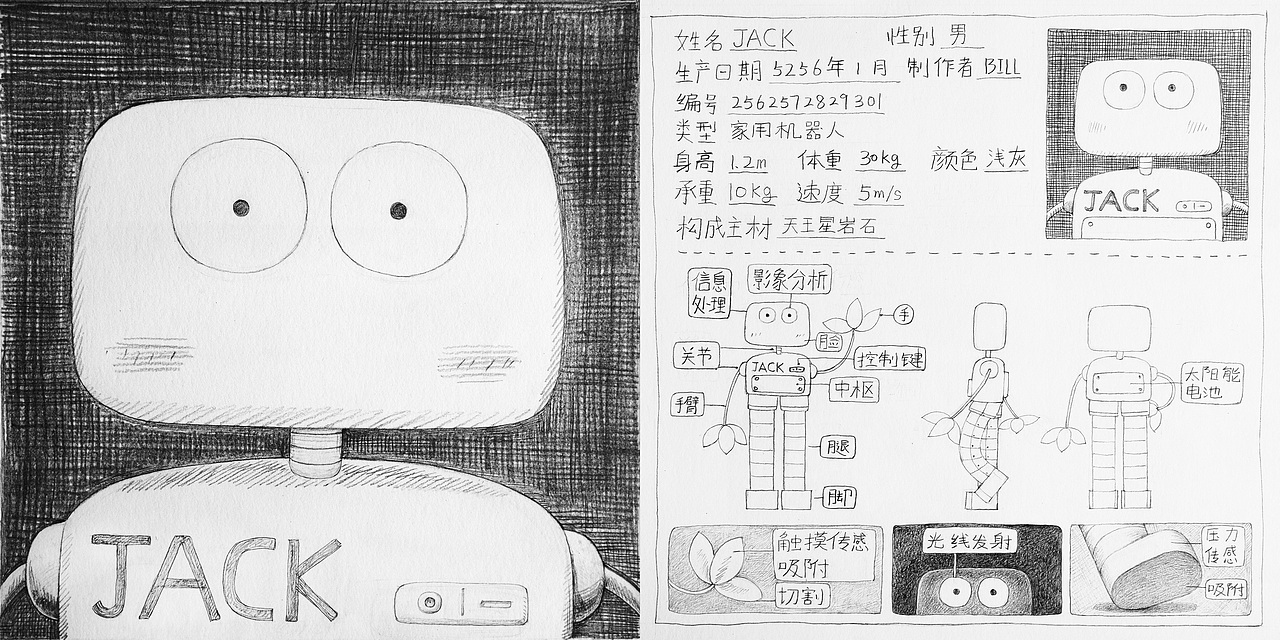 JACK
姓名 JACK 性别 男
生产日期 5256年1月 制作者 BILL
编号 2562572829301
类型 家用机器人
身高 1.2m 体重 30kg 颜色 浅灰
承重 10kg 速度 5m/s
构成主材 天王星岩石
JACK
信息
处理
影象分析
手
脸
关节
JACK
控制键
中枢
手臂
腿
脚
太阳能
电池
触摸传感
吸附
切割
光线发射
压力
传感
吸附